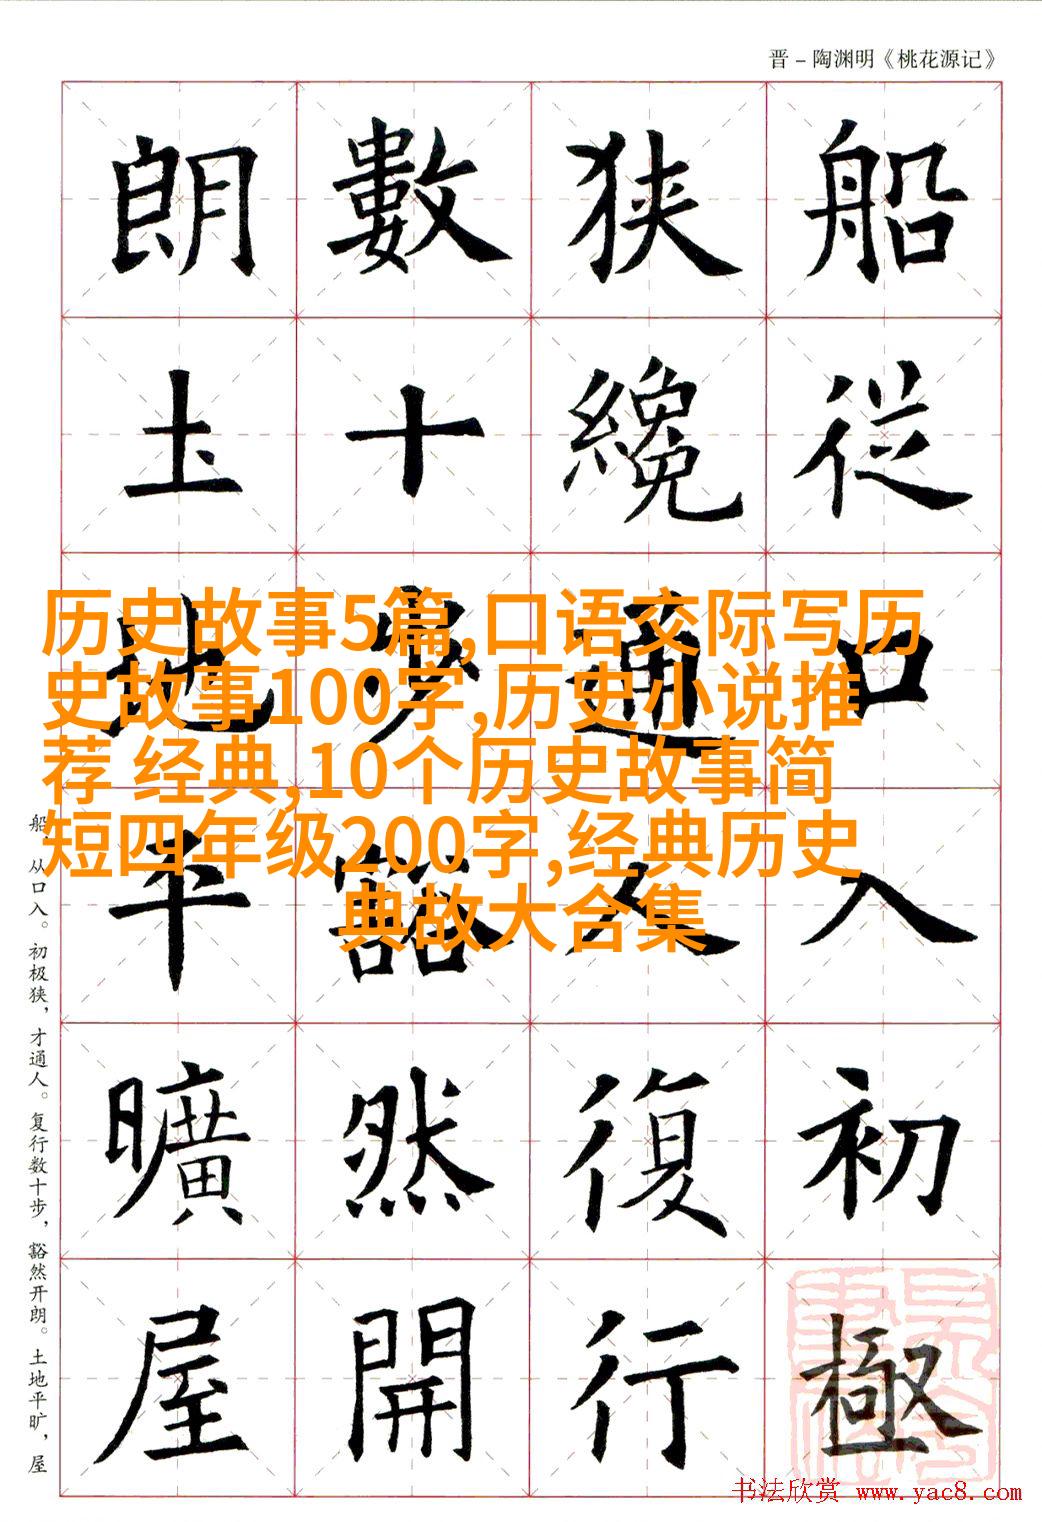 晋－陶渊明《桃花源记》
船從口入初極
狭纔通人復行
數十步豁然開
朗土地平曠屋
历史故事5篇,口语交际写历
史故事100字,历史小说推
荐 经典,10个历史故事简
短四年级200字,经典历史
典故大合集
船，从口入。初极狭，才通人。复行数十步，豁然开朗。土地平旷，屋
书法欣赏 www.yac8.com